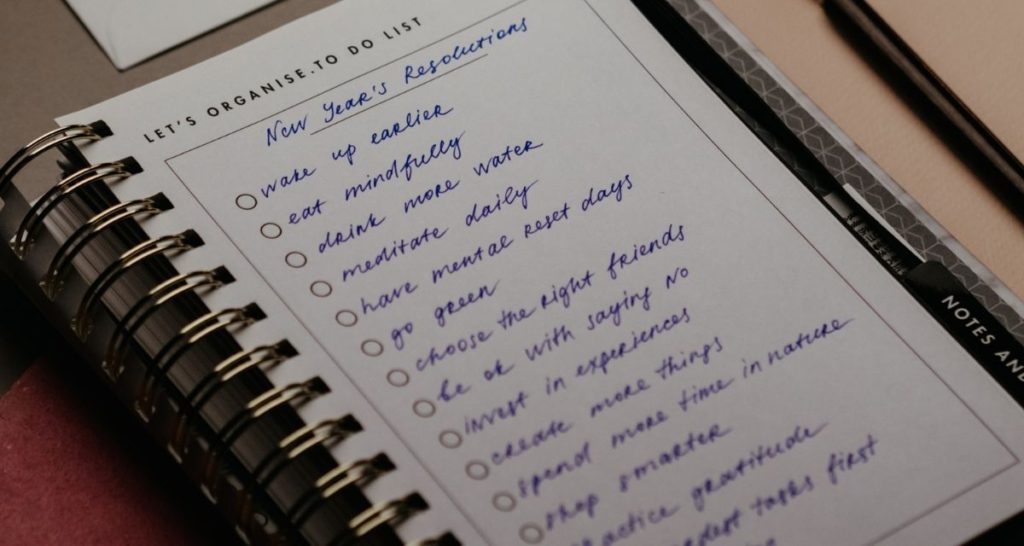 LET'S ORGANISE. TO DO LIST
New Year's Resolutions
wake up earlier
eat mindfully
drink more water
meditate daily
have mental reset days
go green
choose the right friends
be ok with saying NO
invest in experiences
create more things
spend more time in nature
shop smarter
actice gratitude
dest tasks first
NOTES AND